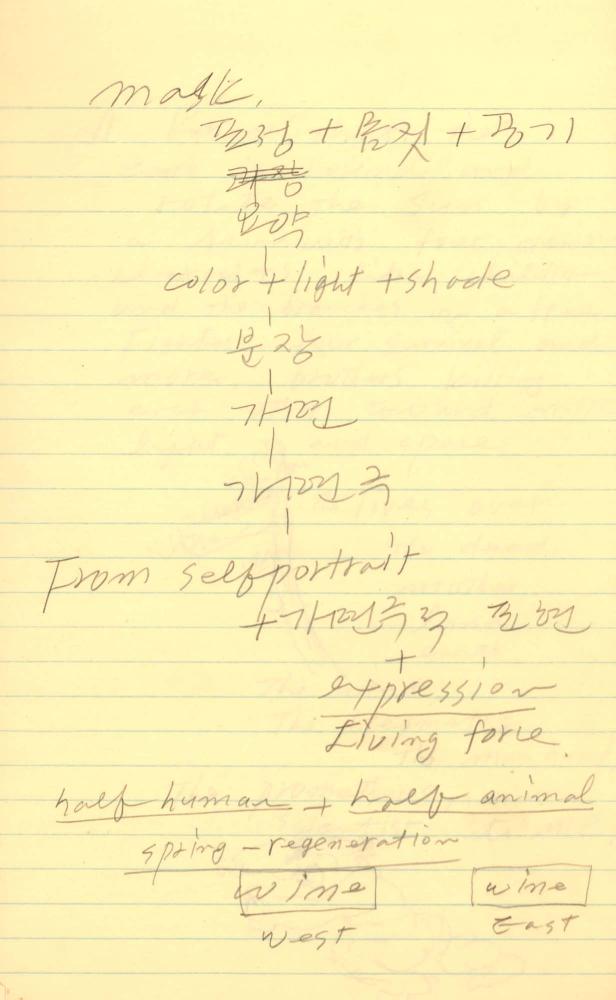 mask.
표정 + 몸짓 +
과장
요약
color + light + shade
분장
가면
가면극
From selfportrait
+ 표현
+
expression
Living force
half human + half animal
spring - regeneration
wine wine
West East